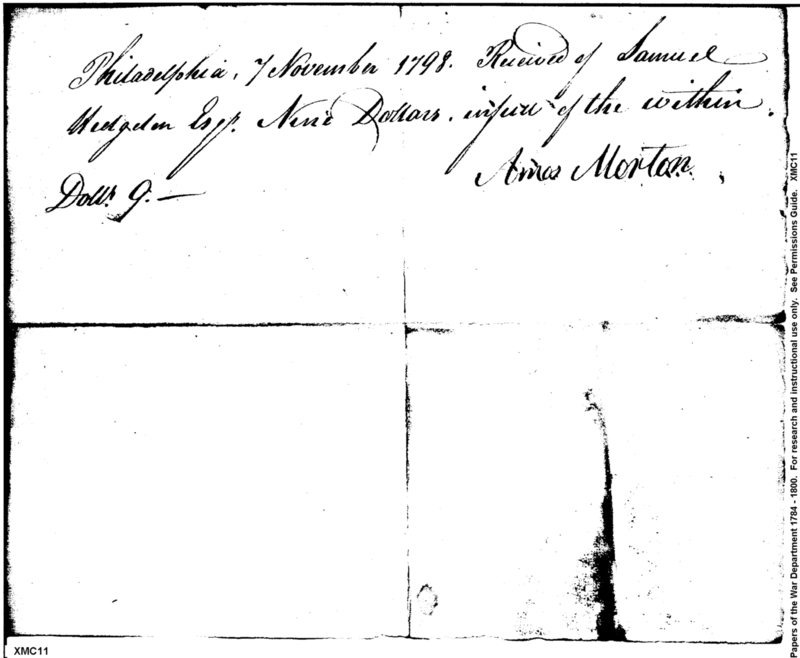 Philadelphia, 7 November 1798. Received of Samuel
Hodgdon Esqr. Nine Dollars, in full of the within.
Amos Morton.
Dolls. 9.—
XMC11
Papers of the War Department 1784 - 1800. For research and instructional use only. See Permissions Guide. XMC11